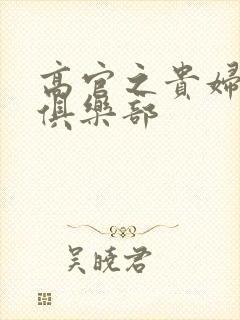 高官之貴婦
俱樂部
吳曉君